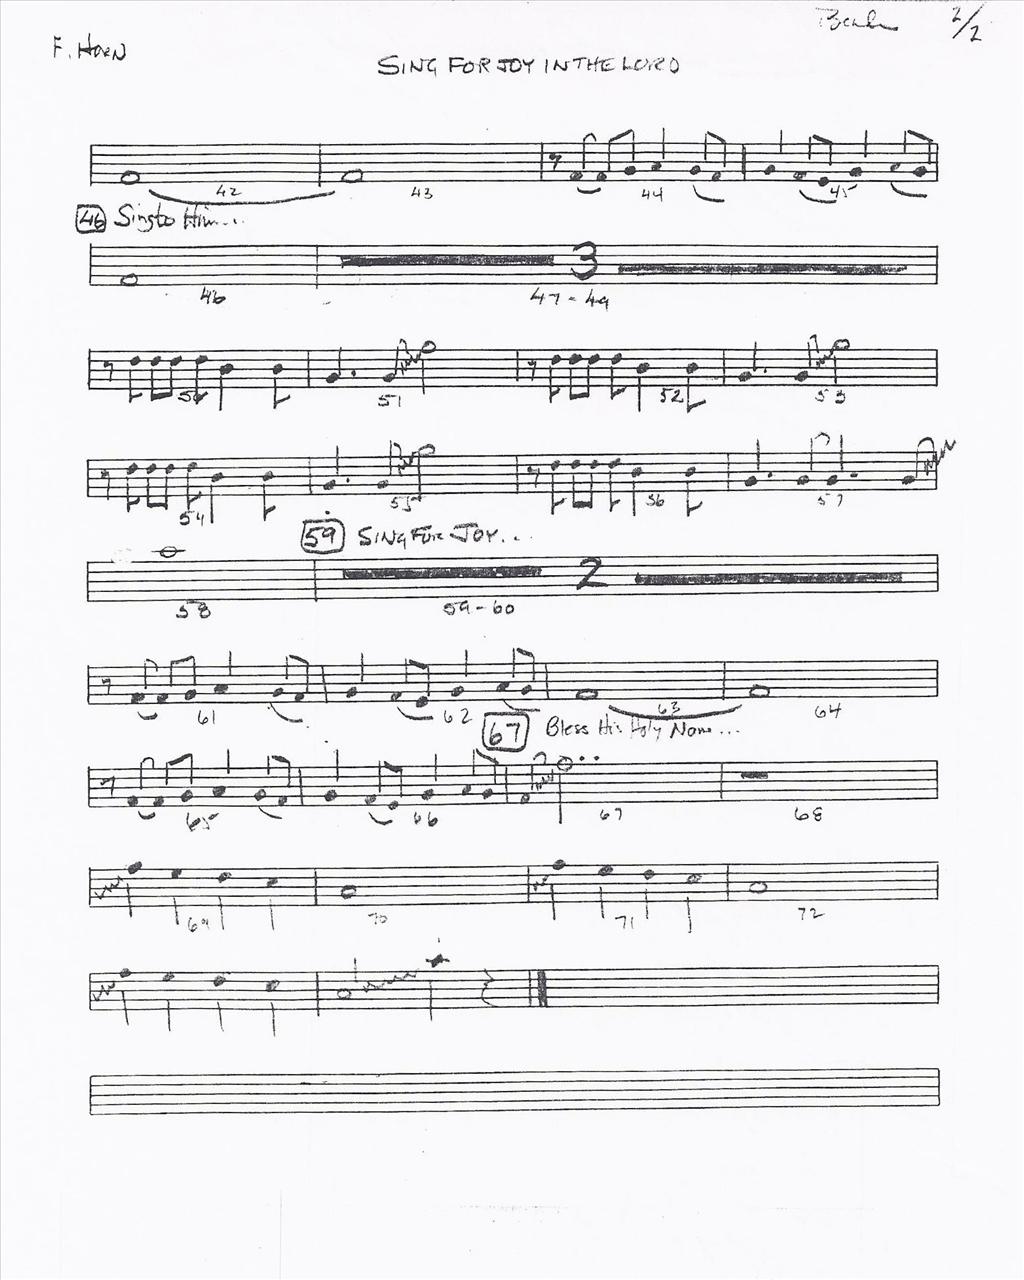 2/2
F. HORN
SING FOR JOY IN THE LORD
42 43 44 45
46 Sing to Him...
3
46 47-49
50 51 52 53
54 55 56 57
59 SING FOR JOY...
2
58 59-60
61 62 63 64
67 Bless His Holy Name...
65 66 67 68
69 70 71 72